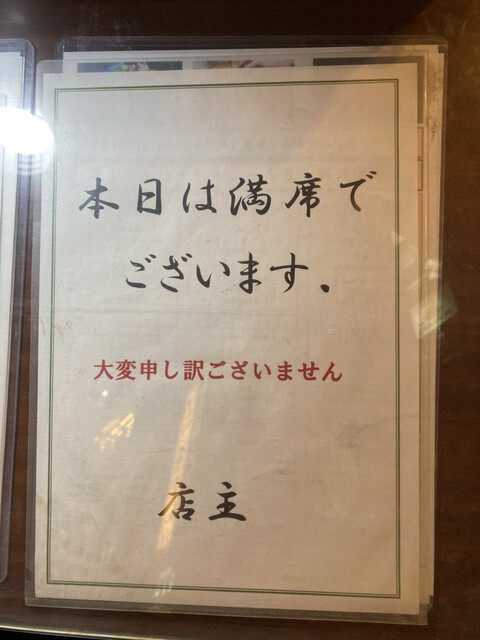 本日は満席で
ございます.
大変申し訳ございません
店主